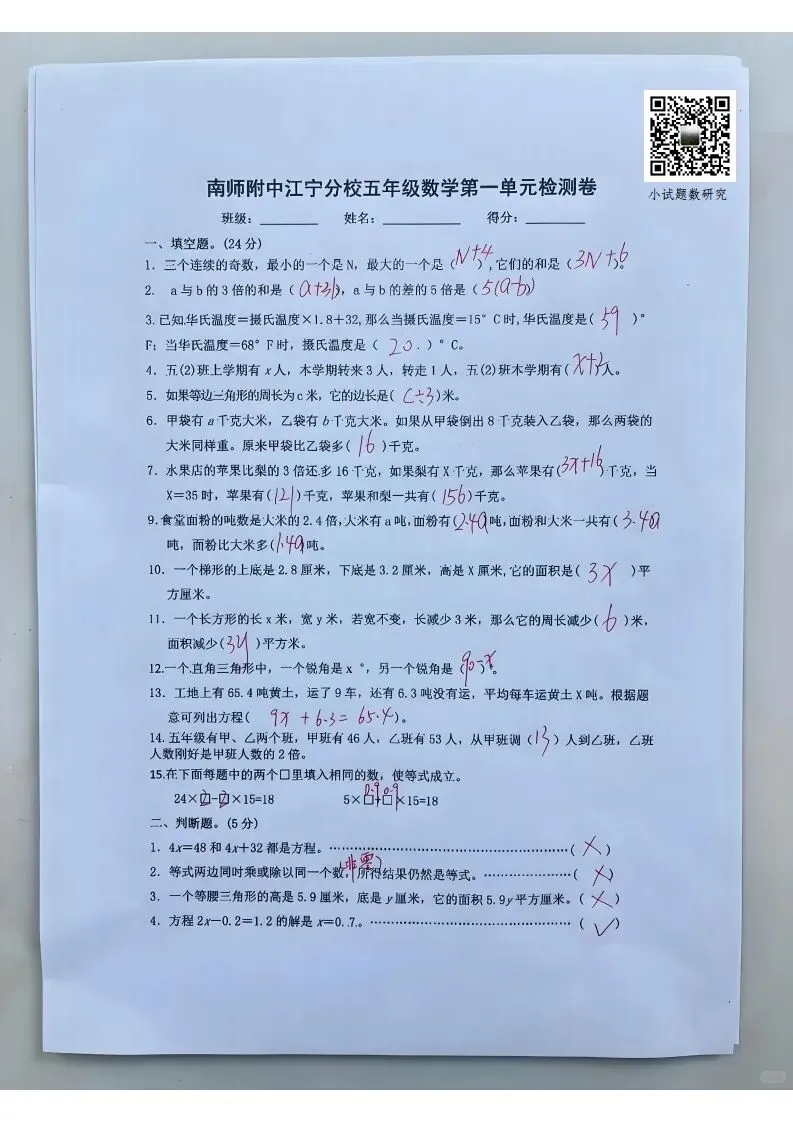 小试题数研究
南师附中江宁分校五年级数学第一单元检测卷
班级：________ 姓名：__________ 得分：________
一、填空题。(24分)
1．三个连续的奇数，最小的一个是N，最大的一个是（N+4），它们的和是（3N+6）。
2． a与b的3倍的和是（a+3b），a与b的差的5倍是（5(a-b)）
3.已知.华氏温度＝摄氏温度×1.8+32,那么当摄氏温度=15°C时,华氏温度是(59)°
F；当华氏温度=68°F时，摄氏温度是（20．）°C。
4．五(2)班上学期有x人，本学期转来3人，转走1人，五(2)班本学期有(x+2)人。
5．如果等边三角形的周长为c米，它的边长是(c÷3)米。
6．甲袋有a千克大米，乙袋有b千克大米。如果从甲袋倒出8千克装入乙袋，那么两袋的
大米同样重。原来甲袋比乙袋多(16)千克。
7．水果店的苹果比梨的3倍还.多16千克，如果梨有X千克，那么苹果有(3x+16)千克，当
X＝35时，苹果有(121)千克，苹果和梨一共有(156)千克。
9.食堂面粉的吨数是大米的2.4倍,大米有a吨,面粉有(2.4a)吨,面粉和大米一共有(3.4a)
吨，面粉比大米多(1.4a)吨。
10．一个梯形的上底是2.8厘米，下底是3.2厘米，高是X厘米,它的面积是(3x)平
方厘米。
11．一个长方形的长x米，宽y米，若宽不变，长减少3米，那么它的周长减少(6)米，
面积减少(3y)平方米。
12.一个.直角三角形中，一个锐角是x°，另一个锐角是（90-x）°。
13．工地上有65.4吨黄土，运了9车，还有6.3吨没有运，平均每车运黄土X吨。根据题
意可列出方程(9x+6.3=65.4)。
14.五年级有甲、乙两个班，甲班有46人，乙班有53人，从甲班调（13）人到乙班，乙班
人数刚好是甲班人数的2倍。
15.在下面每题中的两个□里填入相同的数，使等式成立。
24×□2-□2×15=18 5×□0.9+□0.9×15=18
二、判断题。(5分)
1．4x=48和4x+32都是方程。……………………………………………(×)
2．等式两边同时乘或除以同一个数(非零)，所得结果仍然是等式。…………………(×)
3．一个等腰三角形的高是5.9厘米，底是y厘米，它的面积5.9y平方厘米。(×)
4．方程2x－0.2＝1.2的解是x=0.7.。……………………………………(✓)